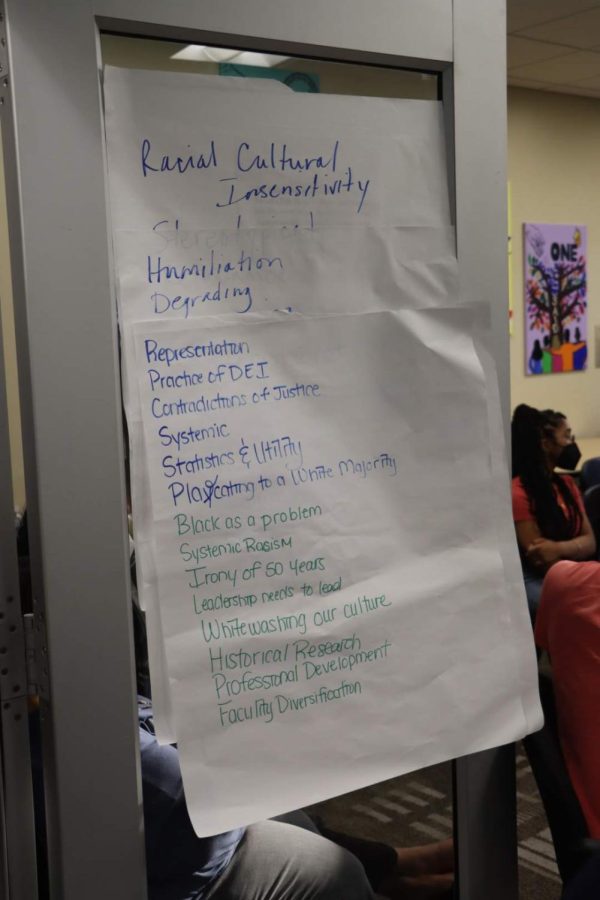 Racial Cultural
Insensitivity
Humiliation
Degrading
Representation
Practice of DEI
Contradictions of Justice
Systemic
Statistics & Utility
Placating to a White Majority
Black as a problem
Systemic Racism
Irony of 50 years
Leadership needs to lead
Whitewashing our culture
Historical Research
Professional Development
Faculity Diversification
ONE